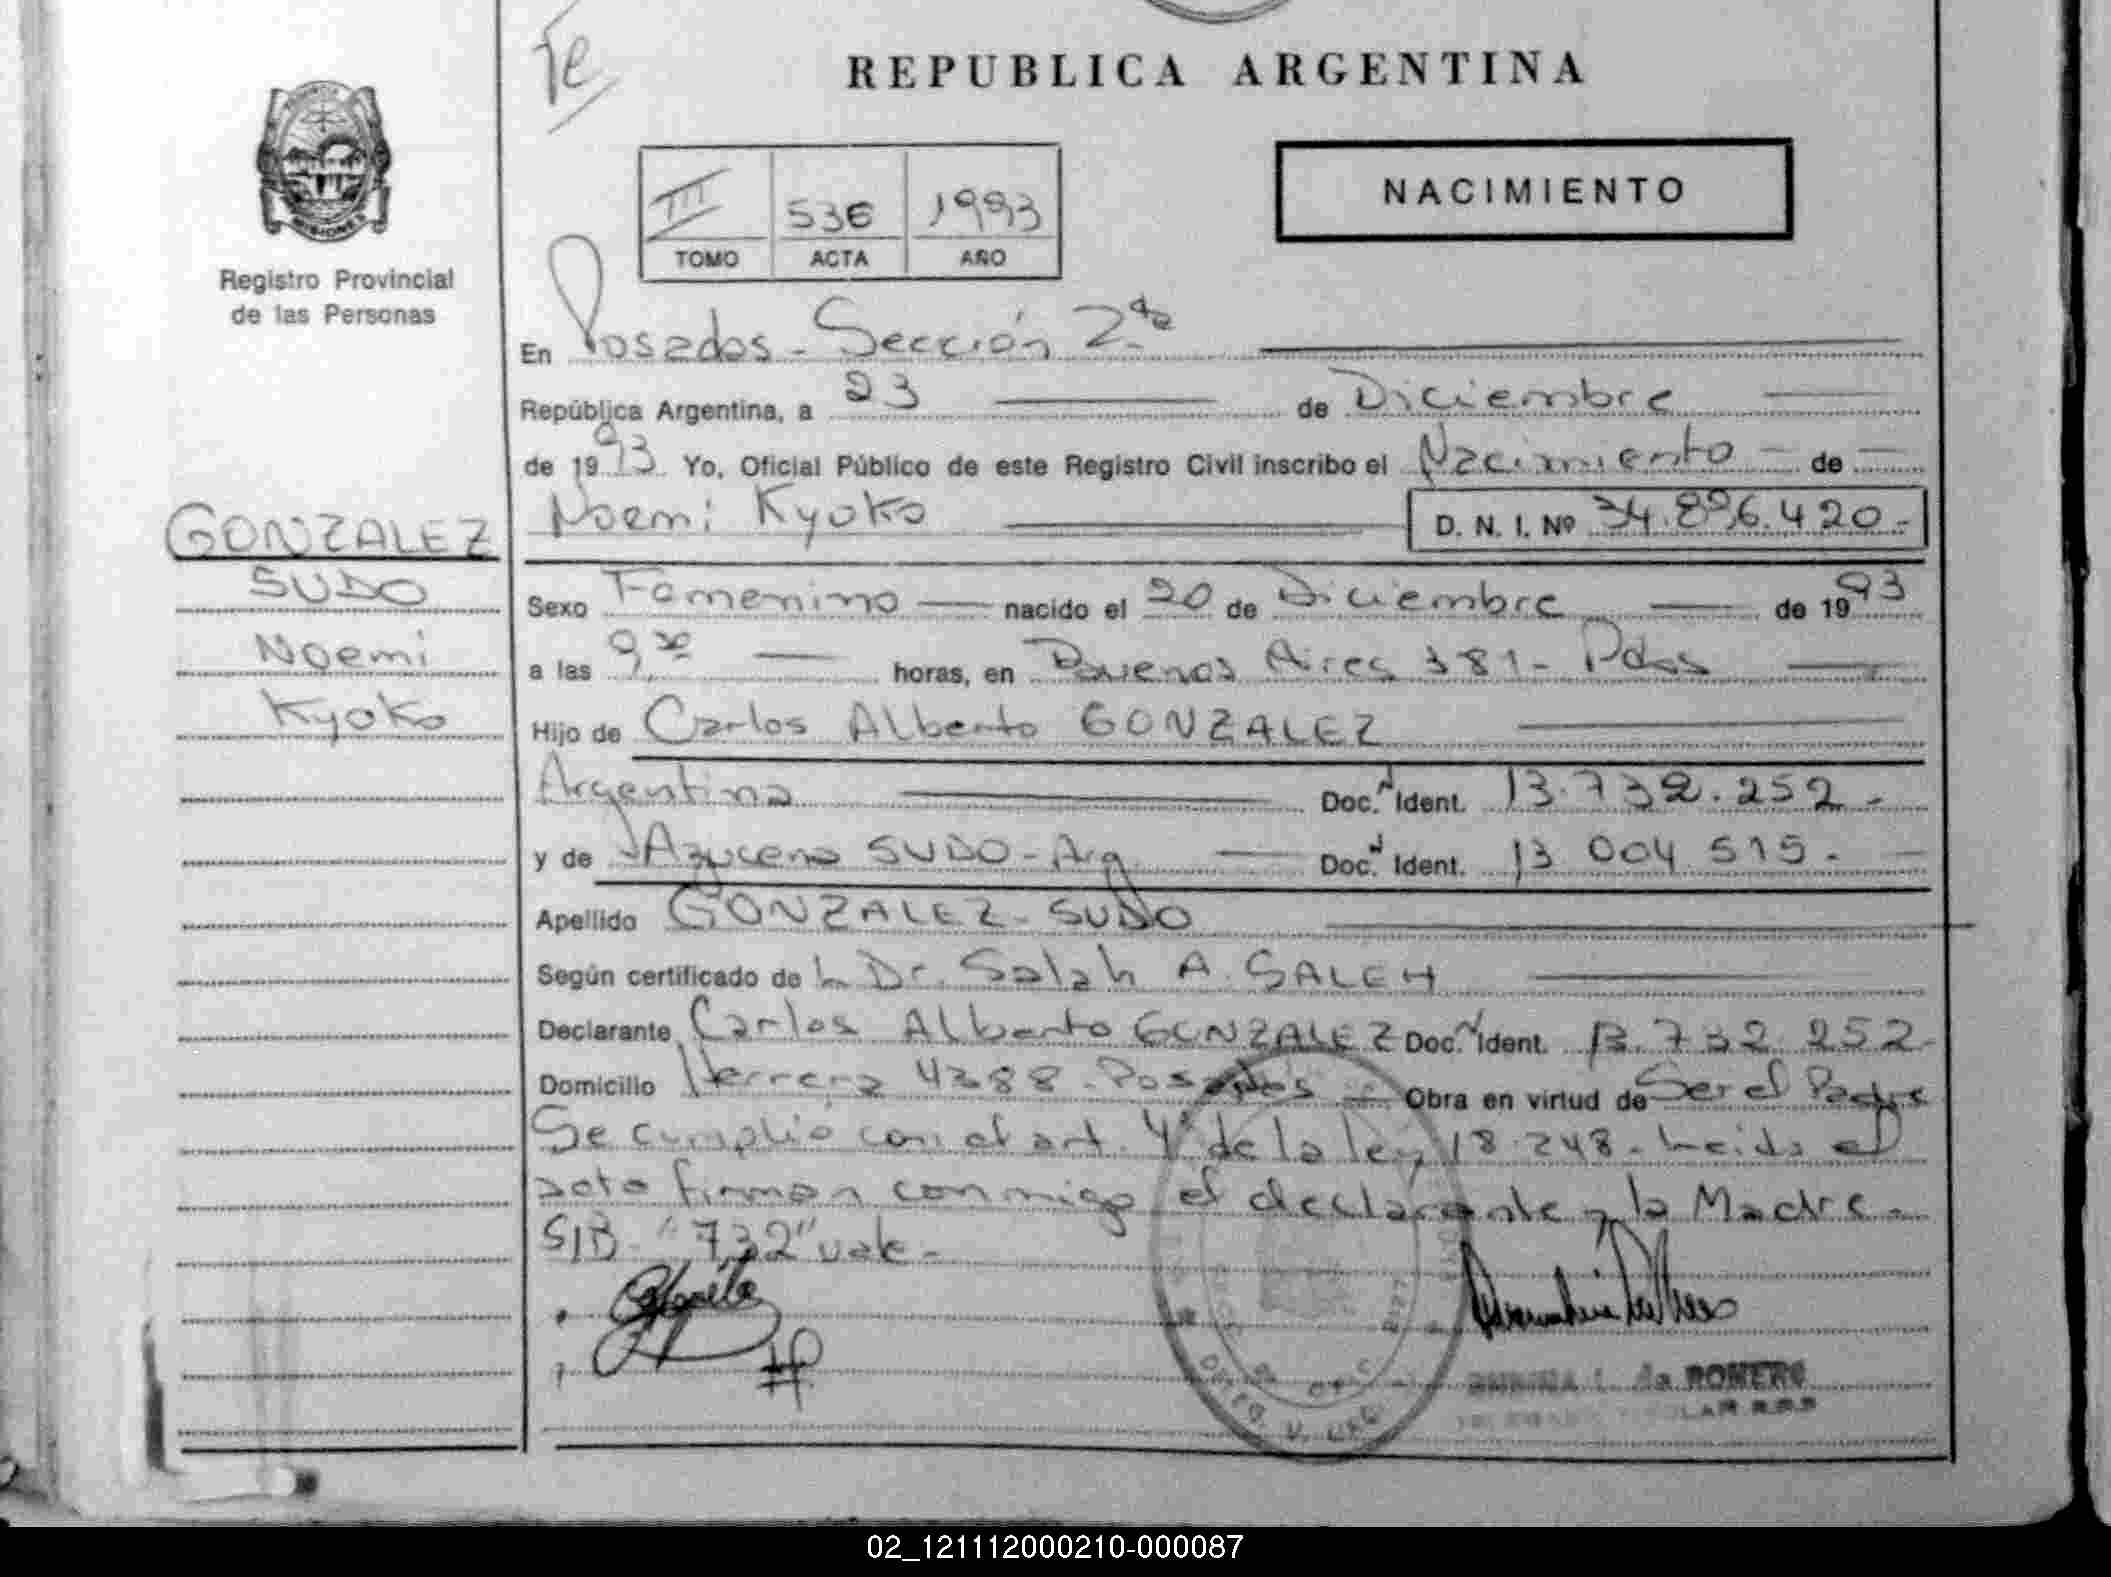 Te
REPUBLICA ARGENTINA
NACIMIENTO
III 536 1993
TOMO ACTA AÑO
MISIONES
Registro Provincial
de las Personas
En Posadas - Sección 2da
República Argentina, a 23 de Diciembre
de 1993 Yo, Oficial Público de este Registro Civil inscribo el Nacimiento de
Noemi Kyoko D. N. I. Nº 34.896.420.-
GONZALEZ
SUDO
Noemi
Kyoko
Sexo Femenino nacido el 20 de Diciembre de 1993
a las 9,30 horas, en Buenos Aires 381 - Pdas
Hijo de Carlos Alberto GONZALEZ
Argentina Doc. N Ident. 13.732.252.-
y de Azucena SUDO - Arg Doc. N Ident. 13 004 515.-
Apellido GONZALEZ - SUDO
Según certificado del Dr. Salah A. SALEH
Declarante Carlos Alberto GONZALEZ Doc. N Ident. 13.732.252-
Domicilio Herrera 4388 - Posadas - Obra en virtud de Ser el Padre
Se cumplió con el art. 4º de la ley 18.248 - Leida el
acta firman conmigo el declarante y la Madre -
S/B "732" vale -
de ROMERO
02_121112000210-000087